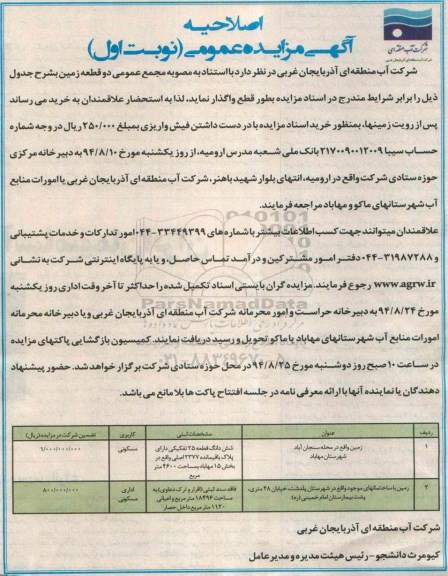 اصلاحیه
آگهی مزایده عمومی (نوبت اول)
شرکت آب منطقه ای
شرکت آب منطقه ای آذربایجان غربی در نظر دارد با استناد به مصوبه مجمع عمومی دو قطعه زمین بشرح جدول
ذیل را برابر شرایط مندرج در اسناد مزایده بطور قطع واگذار نماید، لذا به استحضار علاقمندان به خرید می رساند
پس از رویت زمینها، بمنظور خرید اسناد مزایده با در دست داشتن فیش واریزی بمبلغ ۲۵۰/۰۰۰ ریال در وجه شماره
حساب سیبا ۲۱۷۰۰۹۰۰۱۲۰۰۹ بانک ملی شعبه مدرس ارومیه، از روز یکشنبه مورخ ۹۴/۸/۱۰ به دبیرخانه مرکزی
حوزه ستادی شرکت واقع در ارومیه، انتهای بلوار شهید باهنر، شرکت آب منطقه ای آذربایجان غربی یا امورات منابع
آب شهرستانهای ماکو و مهاباد مراجعه فرمایند.
علاقمندان میتوانند جهت کسب اطلاعات بیشتر با شماره های ۳۳۴۴۹۳۹۹-۰۴۴ امور تدارکات و خدمات پشتیبانی
و ۳۱۹۸۷۲۸۸-۰۴۴ دفتر امور مشترکین و درآمد تماس حاصل، و یا به پایگاه اینترنتی شرکت به نشانی
www.agrw.ir رجوع فرمایند. مزایده گران بایستی اسناد تکمیل شده را حداکثر تا آخر وقت اداری روز یکشنبه
مورخ ۹۴/۸/۲۴ به دبیرخانه حراست و امور محرمانه شرکت آب منطقه ای آذربایجان غربی و یا دبیرخانه محرمانه
امورات منابع آب شهرستانهای مهاباد یا ماکو تحویل و رسید دریافت نمایند. کمیسیون بازگشایی پاکتهای مزایده
در ساعت ۱۰ صبح روز دوشنبه مورخ ۹۴/۸/۲۵ در محل حوزه ستادی شرکت برگزار خواهد شد. حضور پیشنهاد
دهندگان یا نماینده آنها با ارائه معرفی نامه در جلسه افتتاح پاکت ها بلامانع می باشد.
ParsNamadData
۰۲۱-۸۸۳۴۹۶۷۰-۵
ردیف عنوان مشخصات ثبتی کاربری تضمین شرکت در مزایده (ریال)
۱ زمین واقع در محله سنجان آباد شهرستان مهاباد شش دانگ قطعه ۲۵ تفکیکی دارای پلاک باقیمانده ۲۳۷۷ اصلی واقع در بخش ۱۵ مهاباد بمساحت ۴۶۰۰ متر مربع مسکونی ۹/۰۰۰/۰۰۰/۰۰۰
۲ زمین با ساختمانهای موجود واقع در شهرستان پلدشت، خیابان ۴۸ متری، پشت بیمارستان امام خمینی (ره) فاقد سند ثبتی (اقرار و ترک دعاوی) به مساحت ۱۸۴۹۶ متر مربع و اعیانی ۱۱۲۰ متر مربع داخل حصار اداری مسکونی ۸۰۰/۰۰۰/۰۰۰
شرکت آب منطقه ای آذربایجان غربی
کیومرث دانشجو - رئیس هیئت مدیره و مدیر عامل